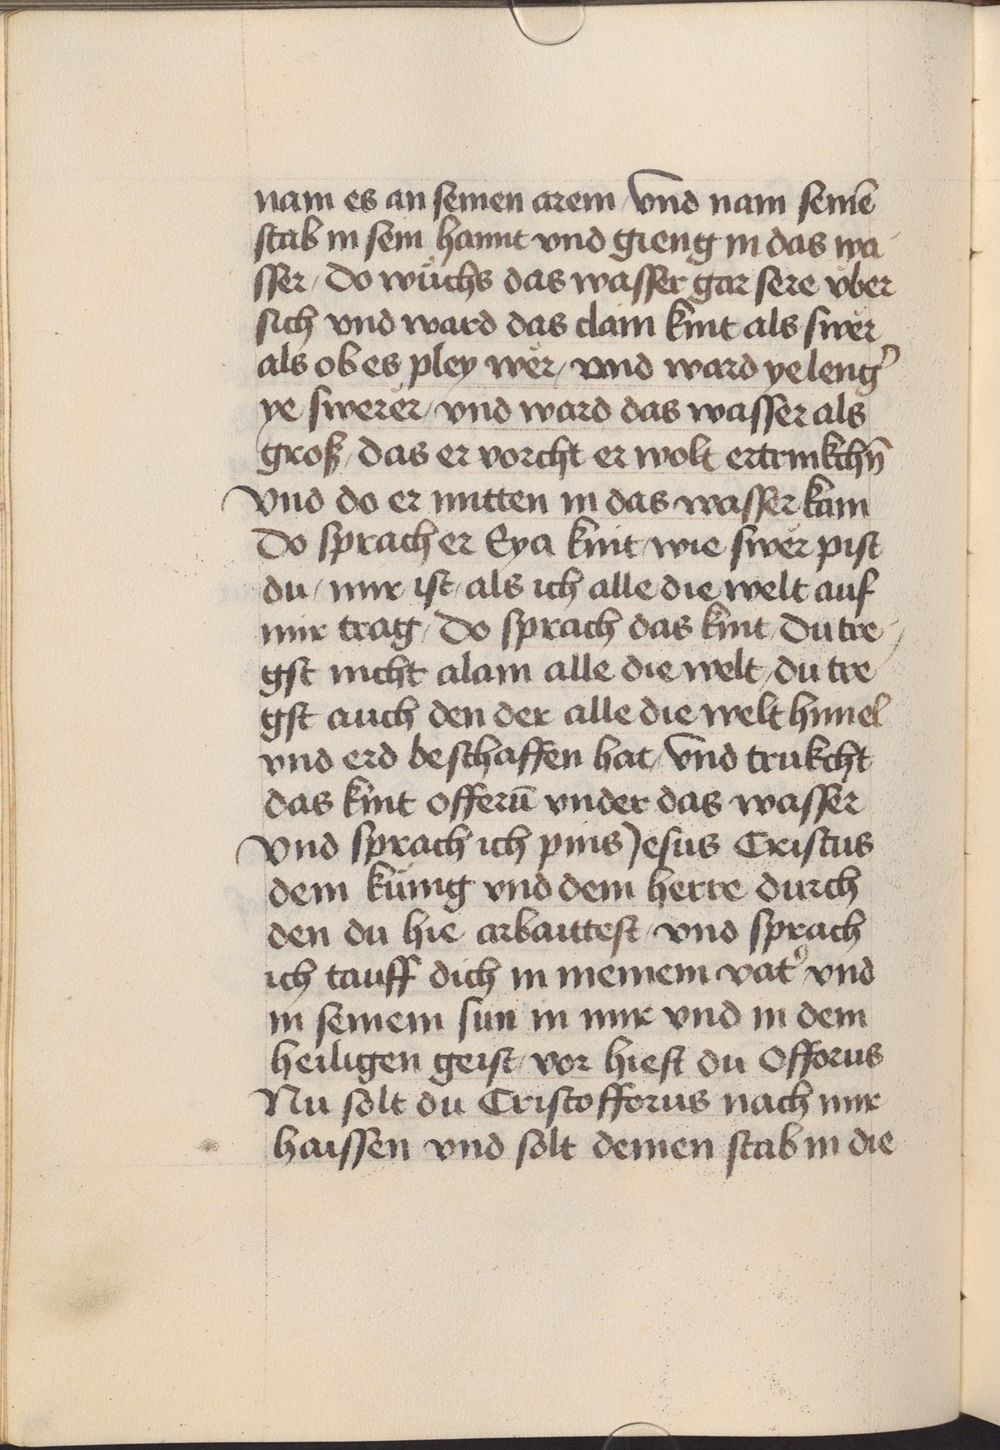 nam es an seinen arem / vnd nam seinē
stab in sein hannt vnd gieng in das wa
sser / Do wuͤchs das wasser gar sere vͤber
sich vnd ward das clain kint als swer
als ob es pley wer / vnd ward ye leng̉
ye swerer / vnd ward das wasser als
groß / das er vorcht er wolt ertrinkchn̄
Vnd do er mitten in das wasser kam
Do sprach er Eya kint / wie swer pist
du / mir ist / als ich alle die welt auf
mir trag / Do sprach das kint / Du tre
gst nicht alain alle die welt / du tre
gst auch den der alle die welt himel
vnd erd beschaffen hat / Vnd trukcht
das kint offerū vnder das wasser
Vnd sprach ich pins Jesus Cristus
dein kuͤnig vnd dein herre durch
den du hie arbaittest / vnd sprach
ich tauff dich in meinem vat̉ vnd
in seinem sun in mir vnd in dem
heiligen geist / vor hiest du Offorus
Nu solt du Cristofforus nach mir
haissen vnd solt deinen stab in die